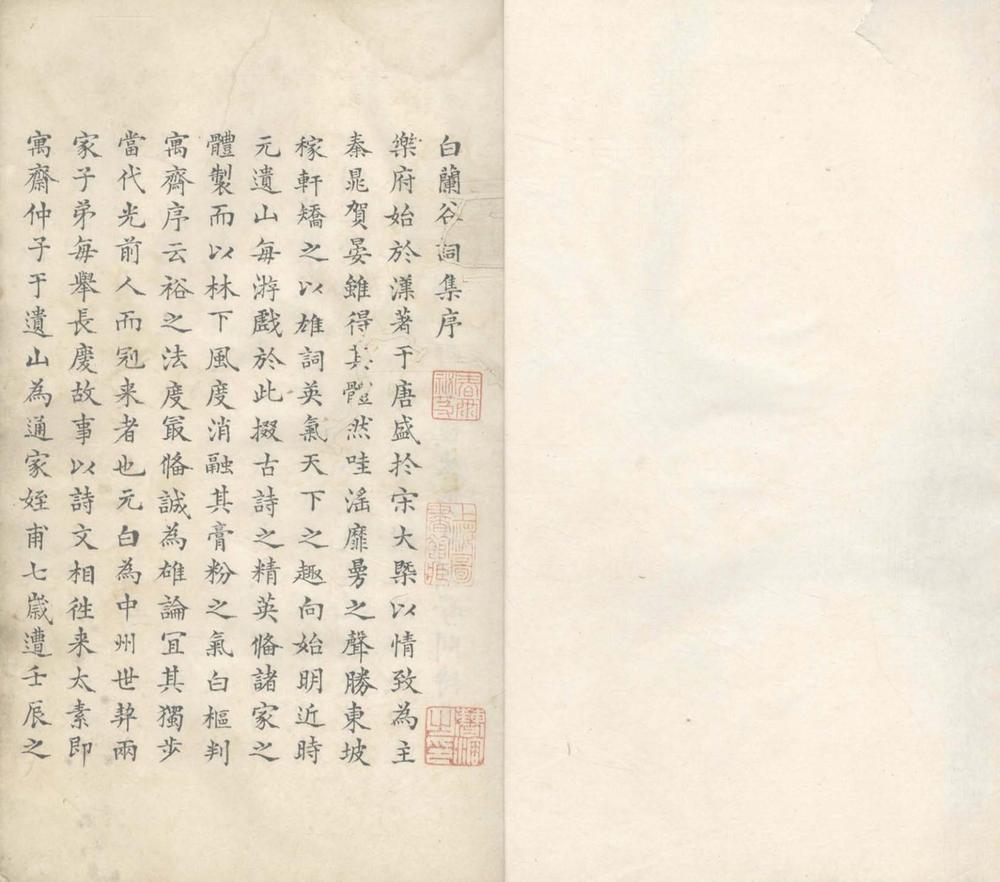 白蘭谷詞集序
樂府始於漢著于唐盛於宋大槩以情致為主
秦晁賀晏雖得其體然哇滛靡曼之聲勝東坡
稼軒矯之以雄詞英氣天下之趣向始明近時
元遺山每游戲於此掇古詩之精英俻諸家之
體製而以林下風度消融其膏粉之氣白樞判
寓齊序云裕之法度㝡俻誠為雄論冝其獨步
當代光前人而冠来者也元白為中州世契兩
家子弟每舉長慶故事以詩文相徃来太素即
寓齋仲子于遺山為通家姪甫七歲遭壬辰之